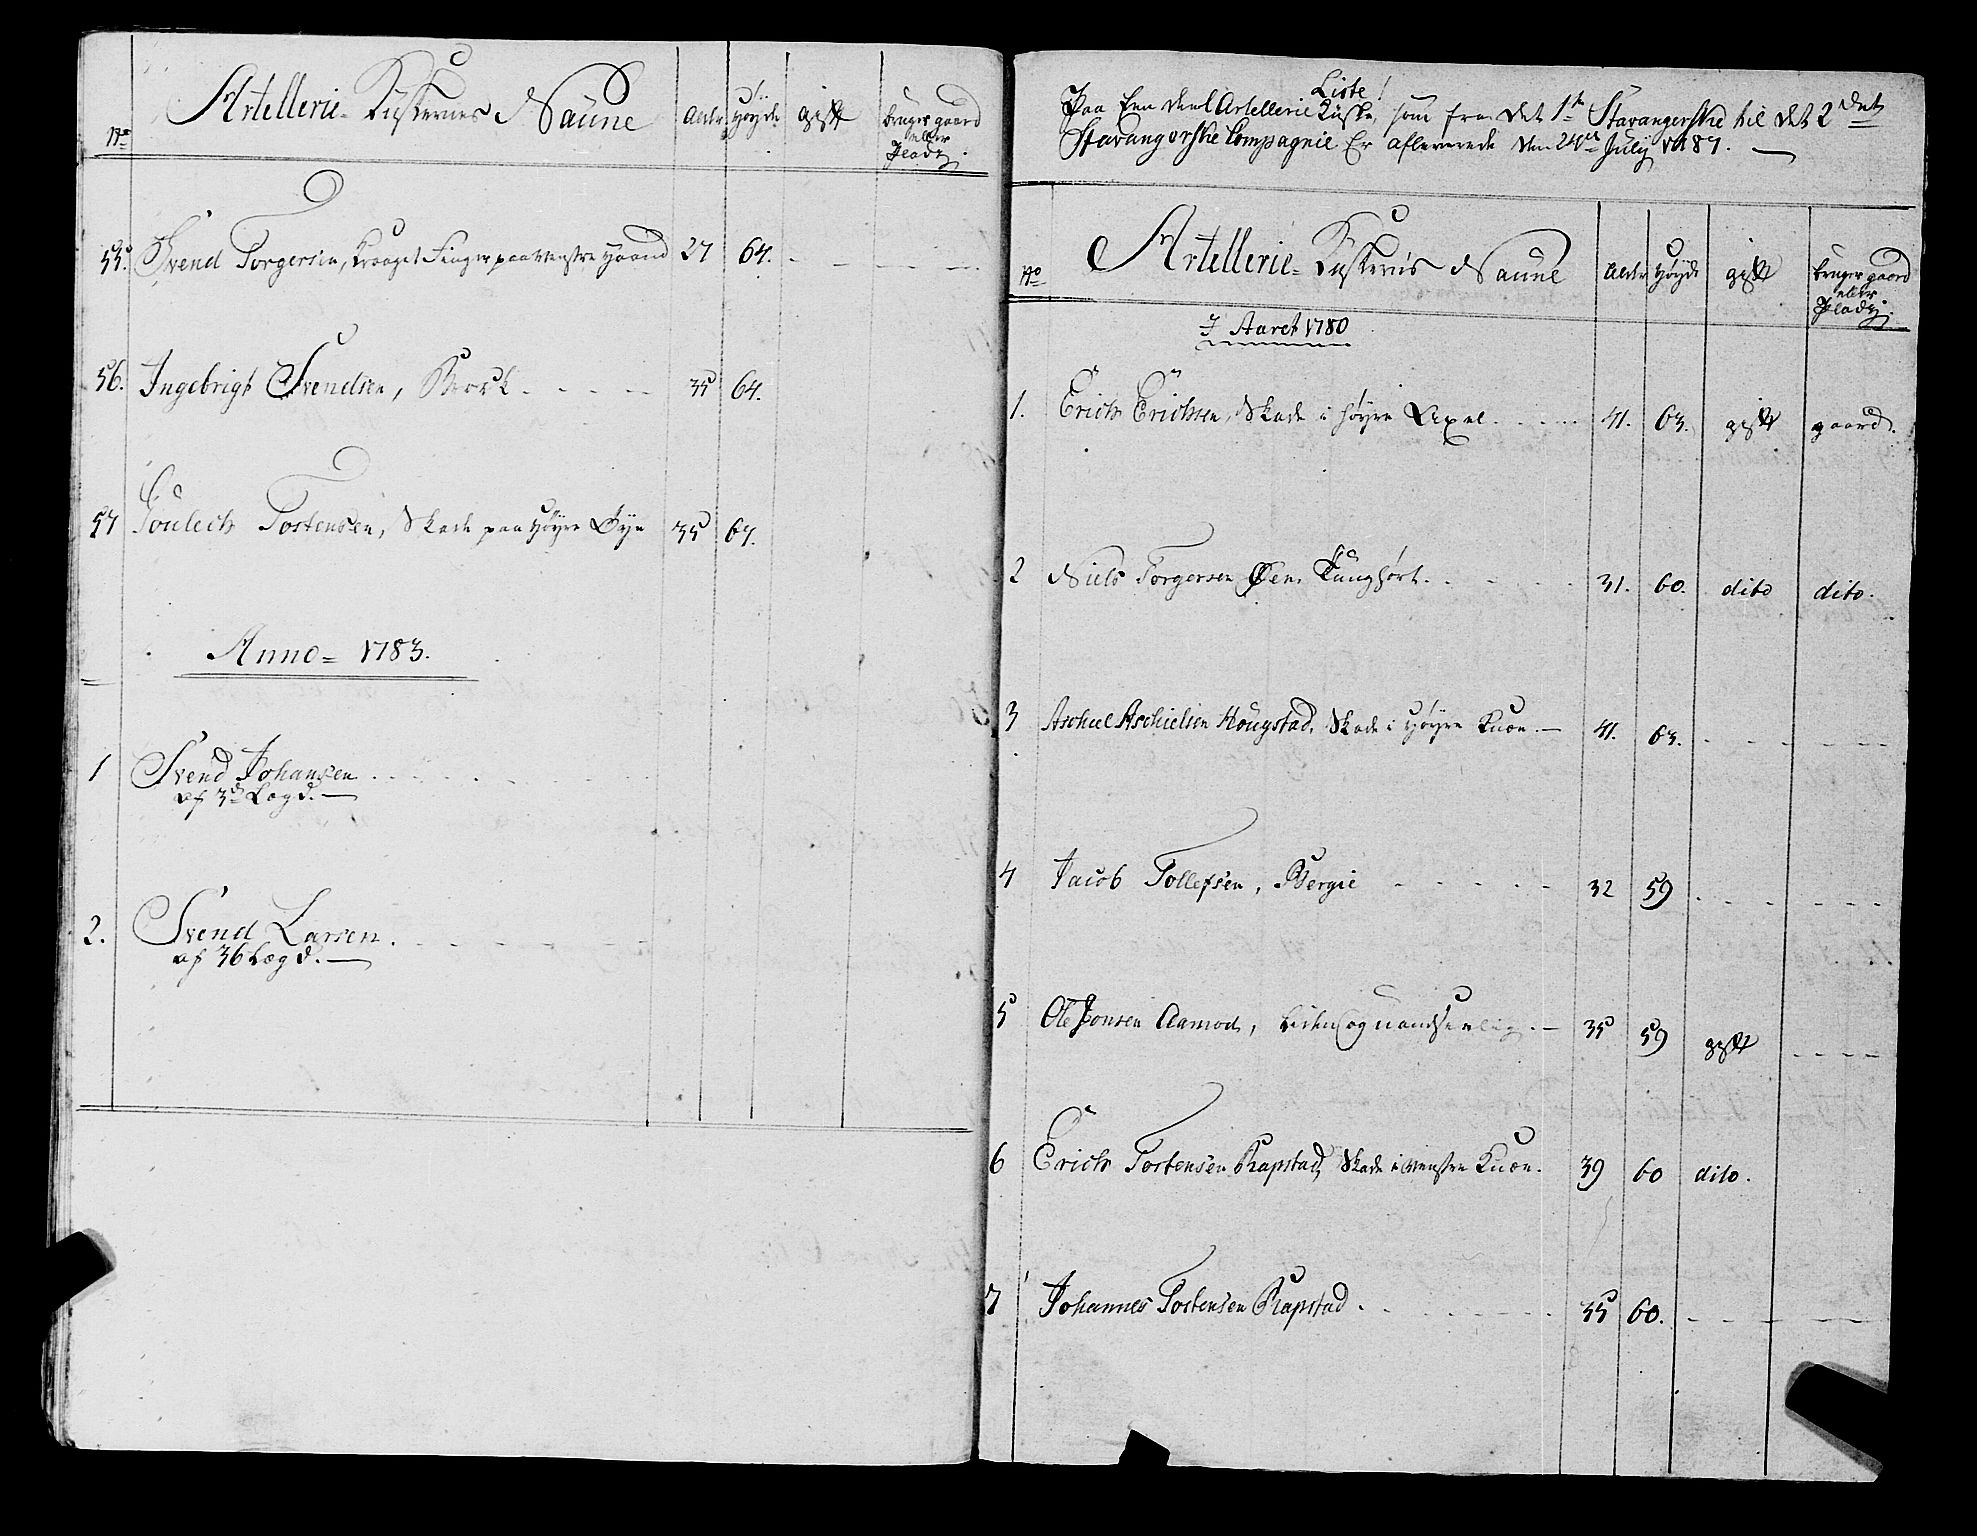 No
Artellerie-Kuskernes Naune
Alder
Høyde
gift
bruger gaard
eller
Pladz.
55. Svend Torgersen, Kraaget Finger paa venstre Haand 27 64.
56. Ingebrigt Svendsen, Mork 35 64.
57 Goulich Tostensen, Skade paa Høyre Øye 35 64.
Anno = 1783.
1 Svend Johansen
af 3de Lægd.
2. Svend Larsen.
af 36 Lægd.
Liste!
Paa Een deel Artellerie Kuske, som fra det 1te Stavangerske til det 2det
Stavangerske Compagnie Er afleverede den 24de July 1787.
No
Artellerie-Kuskernis Naune
Alder
Høyde
gift
bruger gaard
eller
Pladz.
I Aaret 1780
1. Erich Erichsen, Skade i høyre Axel. 41. 63. gift gaard.
2 Niels Torgersen Øen, Tunghørt. 31. 60. dito dito.
3 Aschiel Aschielsen Hougstad, Skade i Høyre Knæe. 41. 63.
4 Jacob Tollefsen, Bergie 32 59
5 Ole Jonsen Aamod, liden og uandseelig. 35 59 gift
6 Erich Tostensen Rapstad, Skade i venstre Knæe. 39 60 dito.
7 Johannes Tostensen Rapstad. 35 60.